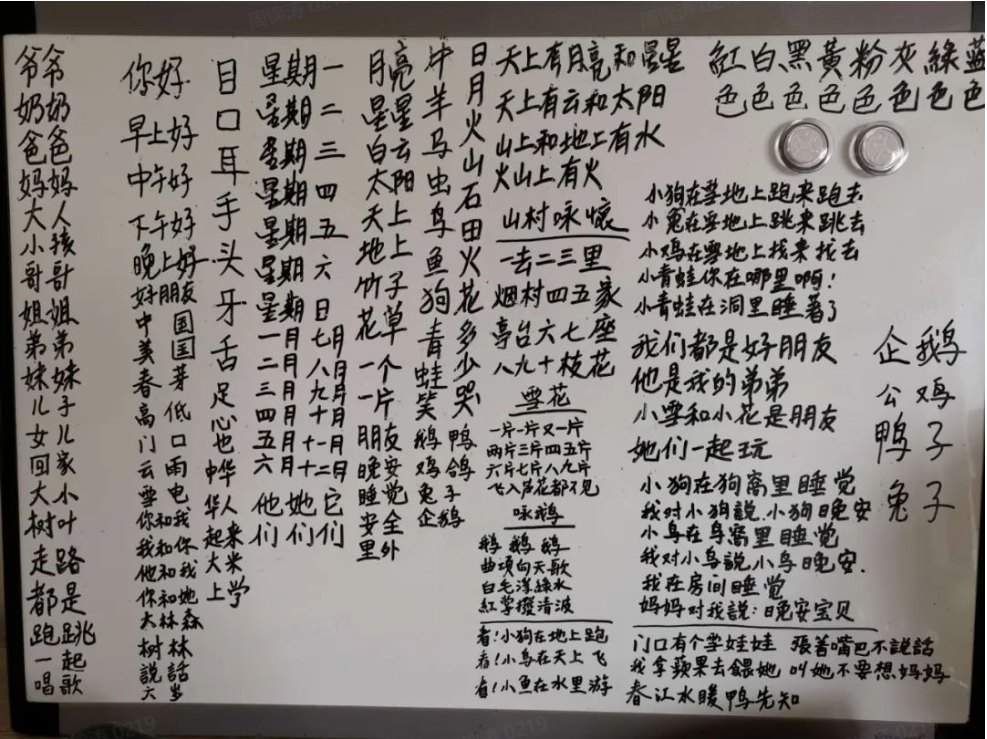 爷爷
奶奶
爸爸
妈妈
大人
小孩
哥哥
姐姐
弟弟
妹妹
儿子
女儿
回家
大小
树叶
走路
都是
跑跳
一起
唱歌
你好
早上好
中午好
下午好
晚上好
好朋友
中国
美国
春芽
高低
门口
云雨
雪电
你和我
我和你
他和我
你和她
大林森
树林
説話
六岁
目
口
耳
手
头
牙
舌
足
心
也
中华
华人
起来
大米
上学
星期一
星期二
星期三
星期四
星期五
星期六
星期日
一月七月
二月八月
三月九月
四月十月
五月十一月
六月十二月
他她它
们们们
月亮
星星
白云
太阳
天上
地上
竹子
花草
一个
一片
朋友
晚安
睡觉
安全
里外
牛
羊
马
虫
鸟
鱼
狗
青
蛙
笑
鹅鸭
鸡鸽
兔子
企鹅
日
月
火
山
石
田
火
花
多
少
哭
天上有月亮和星星
天上有云和太阳
山上和地上有水
火山上有火
山村咏懷
一去二三里
烟村四五家
亭台六七座
八九十枝花
雪花
一片一片又一片
两片三片四五片
六片七片八九片
飞入芦花都不见
咏鹅
鹅鹅鹅
曲项向天歌
白毛浮綠水
紅掌撥清波
看!小狗在地上跑
看!小鸟在天上飞
看!小鱼在水里游
紅白黑黃粉灰綠蓝
色色色色色色色色
小狗在雪地上跑来跑去
小兔在雪地上跳来跳去
小鸡在雪地上找来找去
小青蛙你在哪里啊!
小青蛙在洞里睡着了
我们都是好朋友
他是我的弟弟
小雪和小花是朋友
她们一起玩
小狗在狗窩里睡觉
我对小狗説.小狗晚安
小鸟在鸟窩里睡觉
我对小鸟説小鸟晚安.
我在房间睡觉
妈妈对我説:晚安宝贝
门口有个雪娃娃 張着嘴巴不説話
我拿蘋果去餵她 叫她不要想妈妈
春江水暖鸭先知
企鹅
公鸡
鸭子
兔子